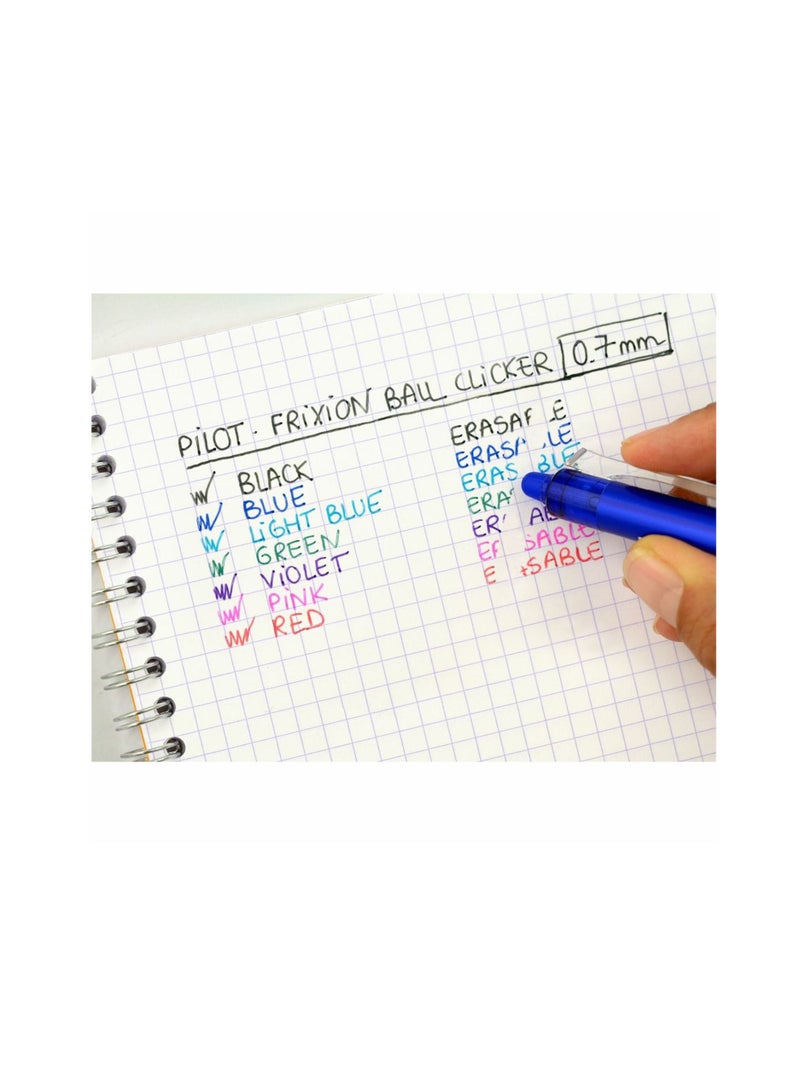 PiLOT - FRiXiON BALL CLiCKER 0.7mm
BLACK
BLUE
LiGHT BLUE
GREEN
ViOLET
PiNK
RED
ERASA LE
ERAS LE
ERAS BLE
ERA
ER AB
E SABLE
E SABLE